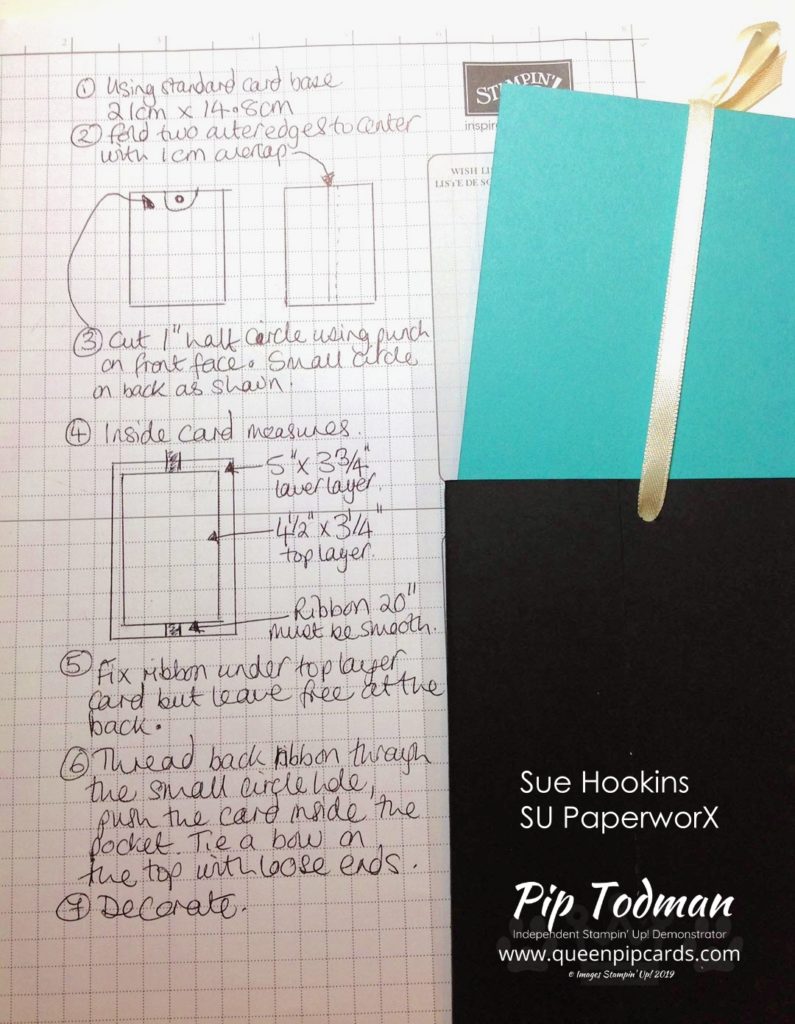 ① Using standard card base
21cm x 14.8cm
② fold two outer edges to center
with 1cm overlap
③ Cut 1" half circle using punch
on front face. Small circle
on back as shown.
④ Inside card measures.
5" x 3 3/4"
lower layer.
4 1/2" x 3 1/4"
top layer.
Ribbon 20"
must be smooth.
⑤ Fix ribbon under top layer
card but leave free at the
back.
⑥ Thread back ribbon through
the small circle hole,
push the card inside the
pocket. Tie a bow on
the top with loose ends.
⑦ Decorate.
2
3
4
5
6
7
8
STAMPIN'
inspire
WISH LI
LISTE DE SO
Sue Hookins
SU PaperworX
Pip Todman
Independent Stampin' Up! Demonstrator
www.queenpipcards.com
© Images Stampin' Up! 2019